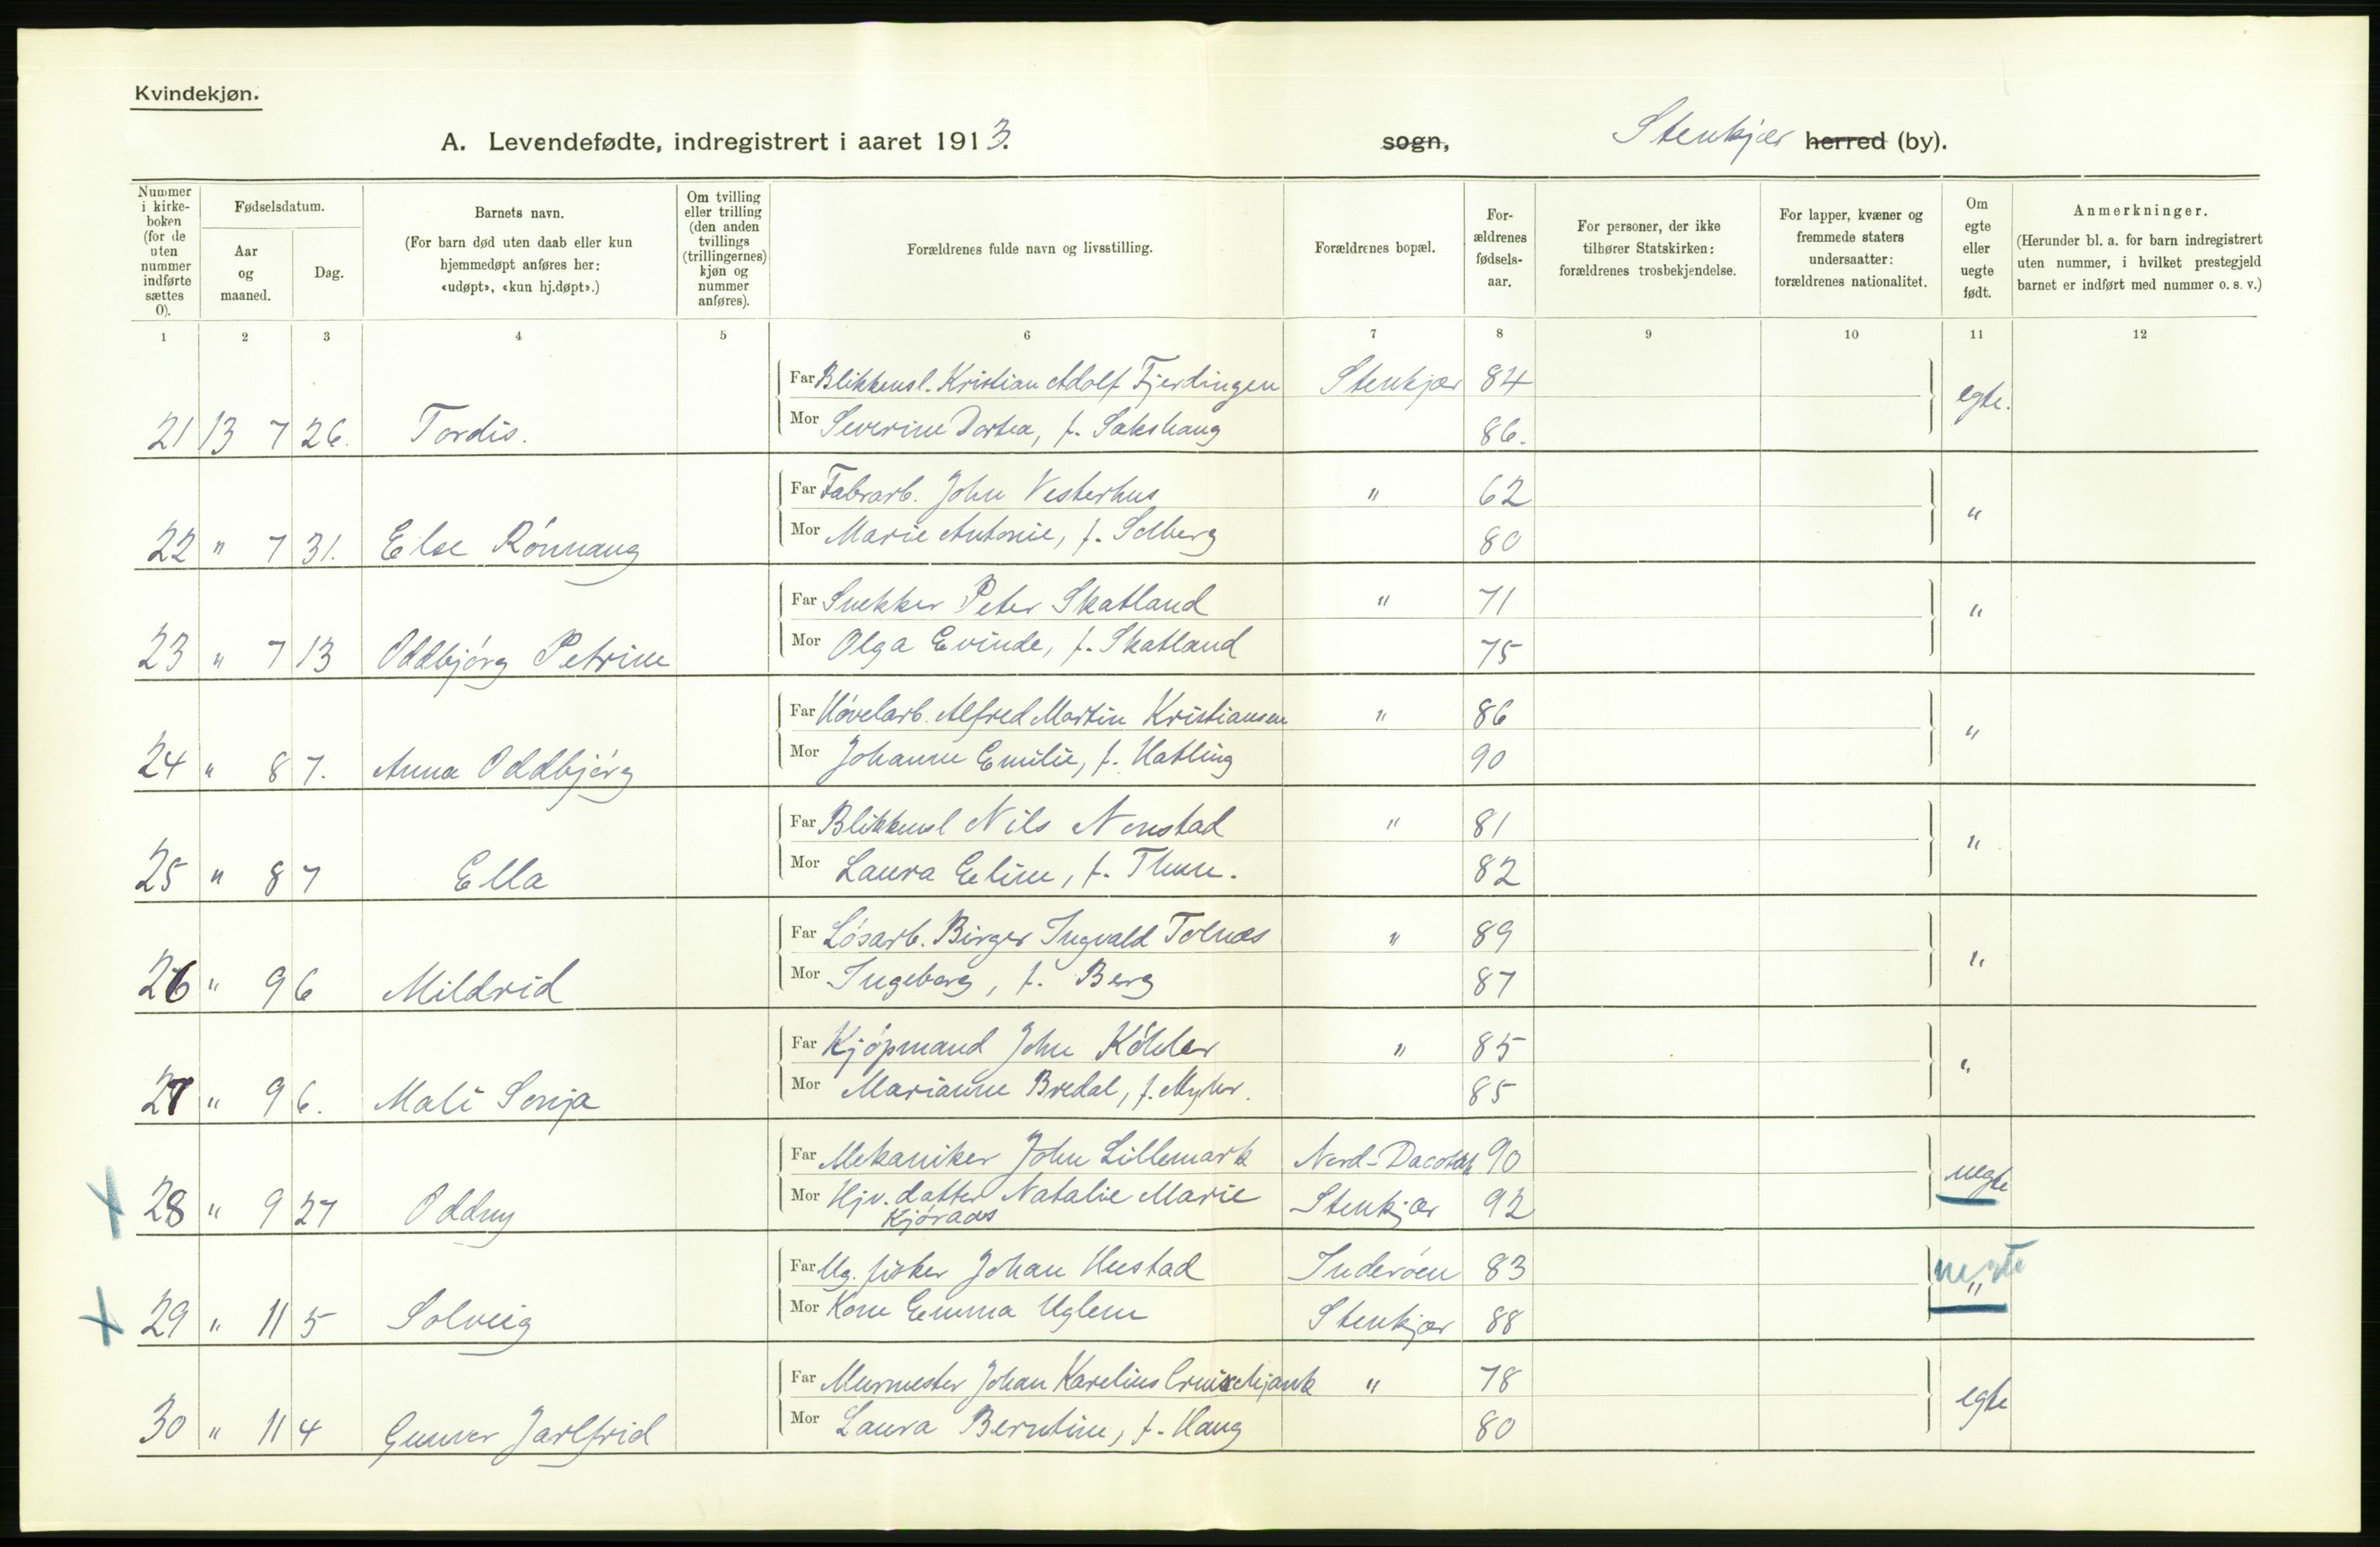 Kvindekjøn.
A. Levendefødte, indregistrert i aaret 1913.
sogn,
Stenkjær herred (by).
Nummer i kirkeboken (for de uten nummer indførte sættes 0).
Fødselsdatum.
Aar og maaned.
Dag.
Barnets navn.
(For barn død uten daab eller kun hjemmedøpt anføres her: «udøpt», «kun hj.døpt».)
Om tvilling eller trilling (den anden tvillings (trillingernes) kjøn og nummer anføres).
Forældrenes fulde navn og livsstilling.
Forældrenes bopæl.
Forældrenes fødselsaar.
For personer, der ikke tilhører Statskirken: forældrenes trosbekjendelse.
For lapper, kvæner og fremmede staters undersaatter: forældrenes nationalitet.
Om egte eller uegte født.
Anmerkninger.
(Herunder bl. a. for barn indregistrert uten nummer, i hvilket prestegjeld barnet er indført med nummer o. s. v.)
1 2 3 4 5 6 7 8 9 10 11 12
Far Blikkensl. Kristian Adolf Fjerdingen Stenkjær 84 egte.
21 13 7 26. Tordis. Mor Severine Dortea, f. Sakshaug 86.
Far Fabrarb. John Vesterhus " 62 "
22 " 7 31. Else Rónnaug Mor Marie Antonie, f. Solberg 80
Far Snekker Peter Skatland " 71 "
23 " 7 13 Oddbjórg Petrine Mor Olga Evinde, f. Skatland 75
Far Hóvelarb. Alfred Martin Kristiansen " 86 "
24 " 8 7. Anna Oddbjórg Mor Johanne Emilie, f. Hatling 90
Far Blikkensl Nils Nonstad " 81 "
25 " 8 7 Ella Mor Laura Eline, f. Thune. 82
Far Lósarb. Birger Ingvald Tolnæs " 89 "
26 " 9 6 Mildrid Mor Ingeborg, f. Berg 87
Far Kjópmand John Köhler " 85 "
27 " 9 6. Mali Sonja Mor Marianne Bredal, f. Myhr. 85
Far Mekaniker John Lillemark Nord-Dacotah 90 uegte
28 " 9 27 Oddny Mor Hjv. datter Natalie Marie Stenkjær 92
Kjóraas
Far Ug. fisker Johan Hustad Inderóen 83 uegte "
29 " 11 5 Solveig Mor Kone Emma Uglem Stenkjær 88
Far Murmester Johan Karelius " 78 egte
30 " 11 4 Gunvor Jarlfrid Mor Laura Berntine, f. Haug 80